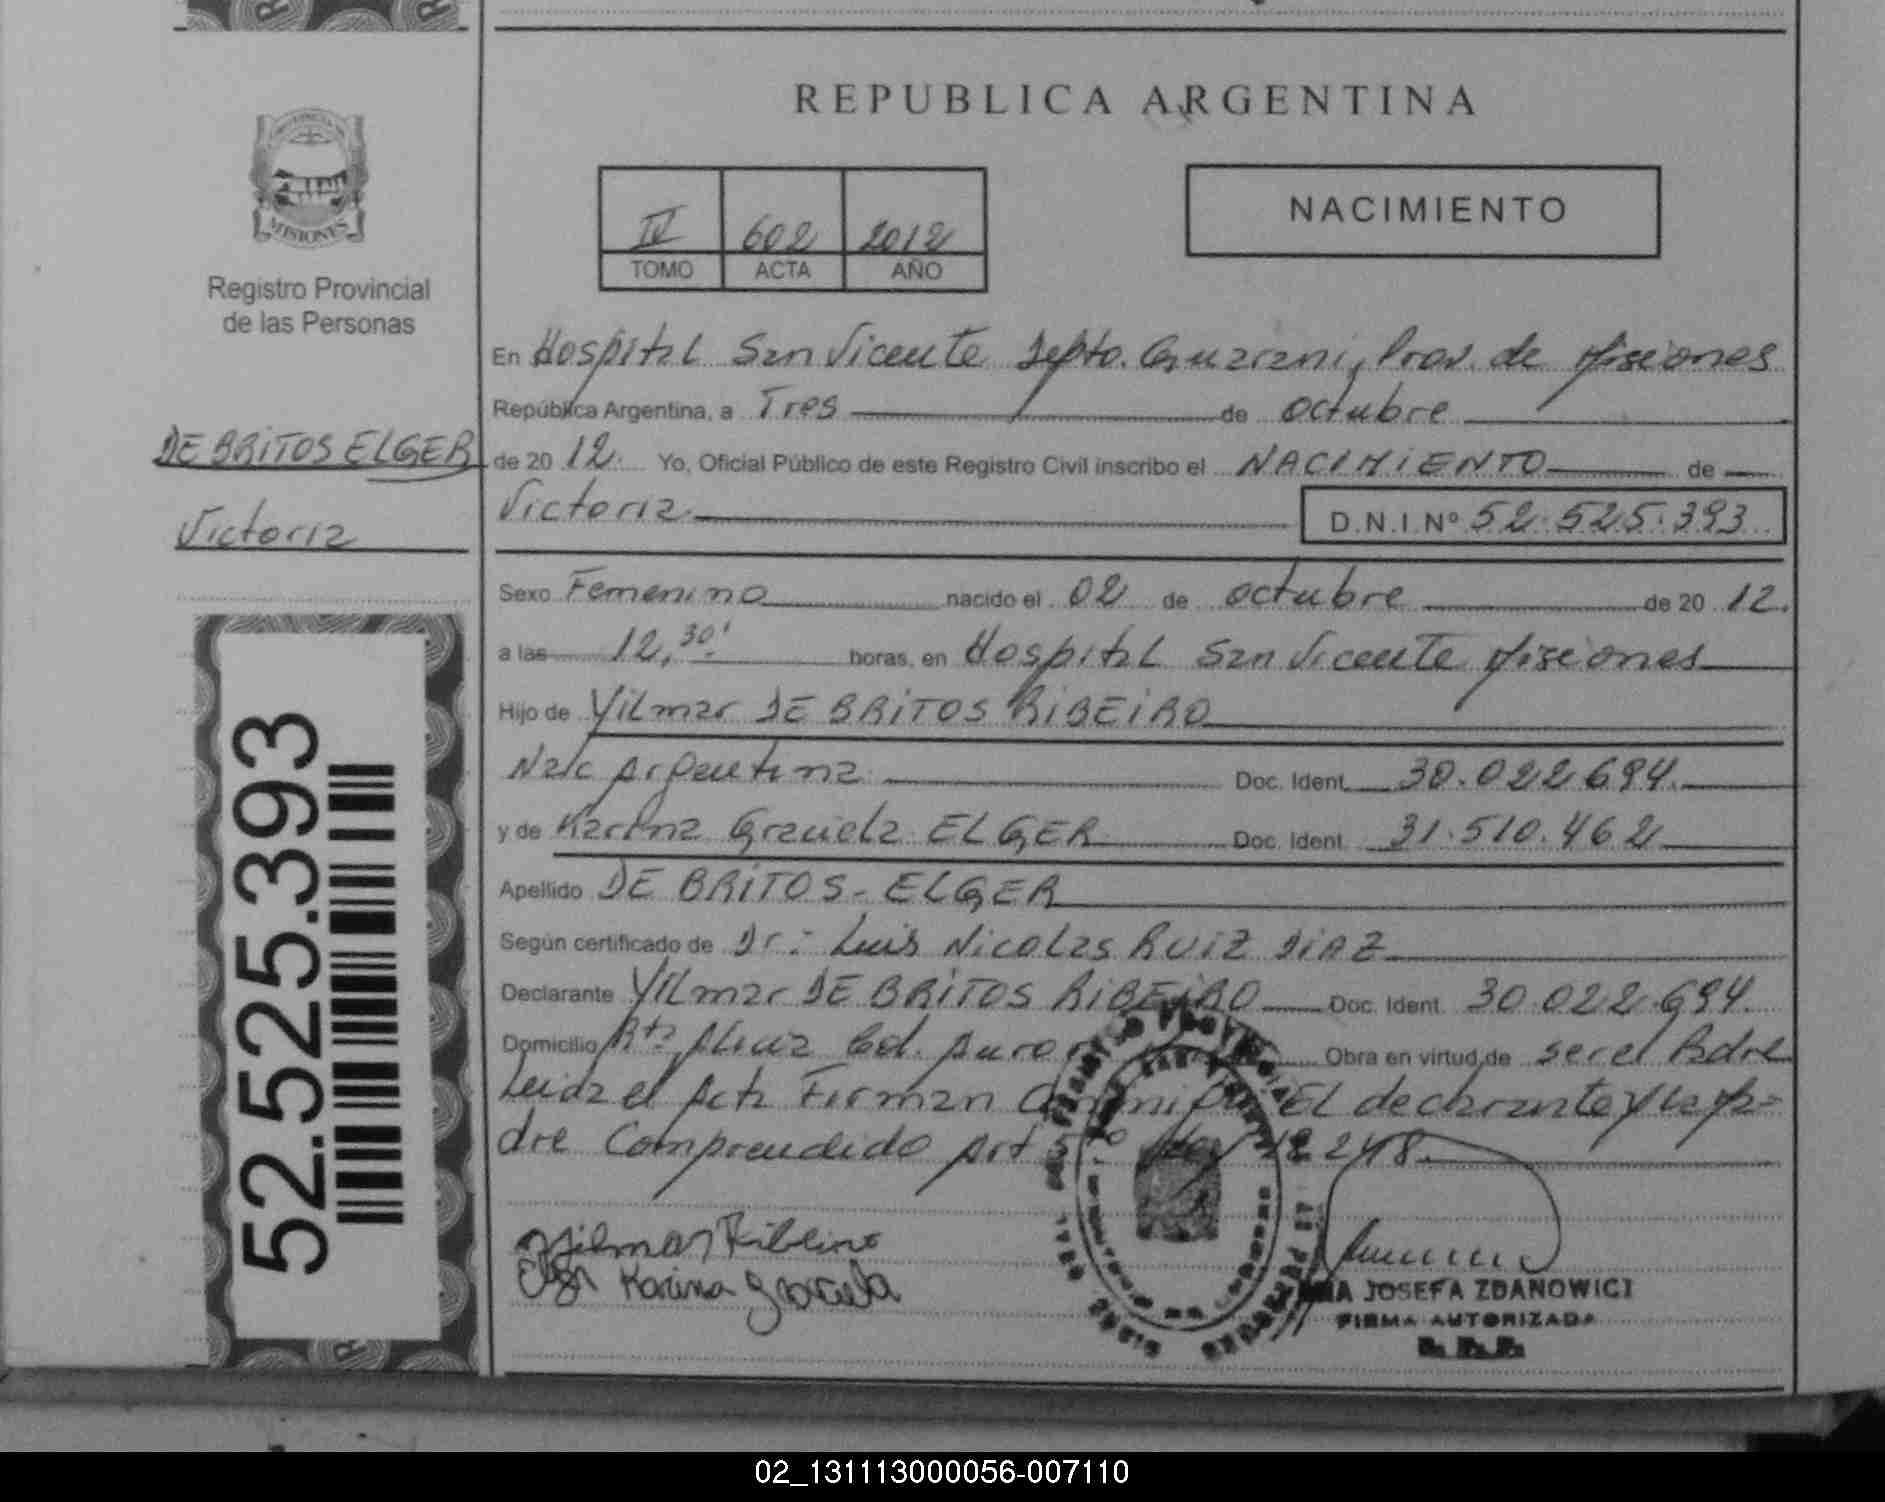 REPUBLICA ARGENTINA
MISIONES
Registro Provincial
de las Personas
DE BRITOS ELGER
Victoria
52.525.393
IV 602 2012
TOMO ACTA AÑO
NACIMIENTO
En Hospital San Vicente Depto. Guarani, Prov. de Misiones
República Argentina, a Tres de octubre
de 2012. Yo, Oficial Público de este Registro Civil inscribo el NACIMIENTO de
Victoria D.N.I Nº 52.525.393
Sexo Femenino nacido el 02 de octubre de 2012.
a las 12,30' horas, en Hospital San Vicente Misiones
Hijo de Yilmar DE BRITOS RIBEIRO
Nac Argentina Doc. Ident. 30.022.694.
y de Karina Graciela ELGER Doc. Ident. 31.510.462
Apellido DE BRITOS-ELGER
Según certificado de Dr: Luis Nicolas RUIZ DIAZ
Declarante Yilmar DE BRITOS RIBEIRO Doc. Ident. 30.022.694.
Domicilio Obra en virtud de ser el Padre
Leida el Acta Firman El declarante y la
dre Comprendido Art 5to Ley 18.248.
Yilmar Ribeiro
Elger Karina Graciela
JOSEFA ZDANOWICZ
FIRMA AUTORIZADA
02_131113000056-007110